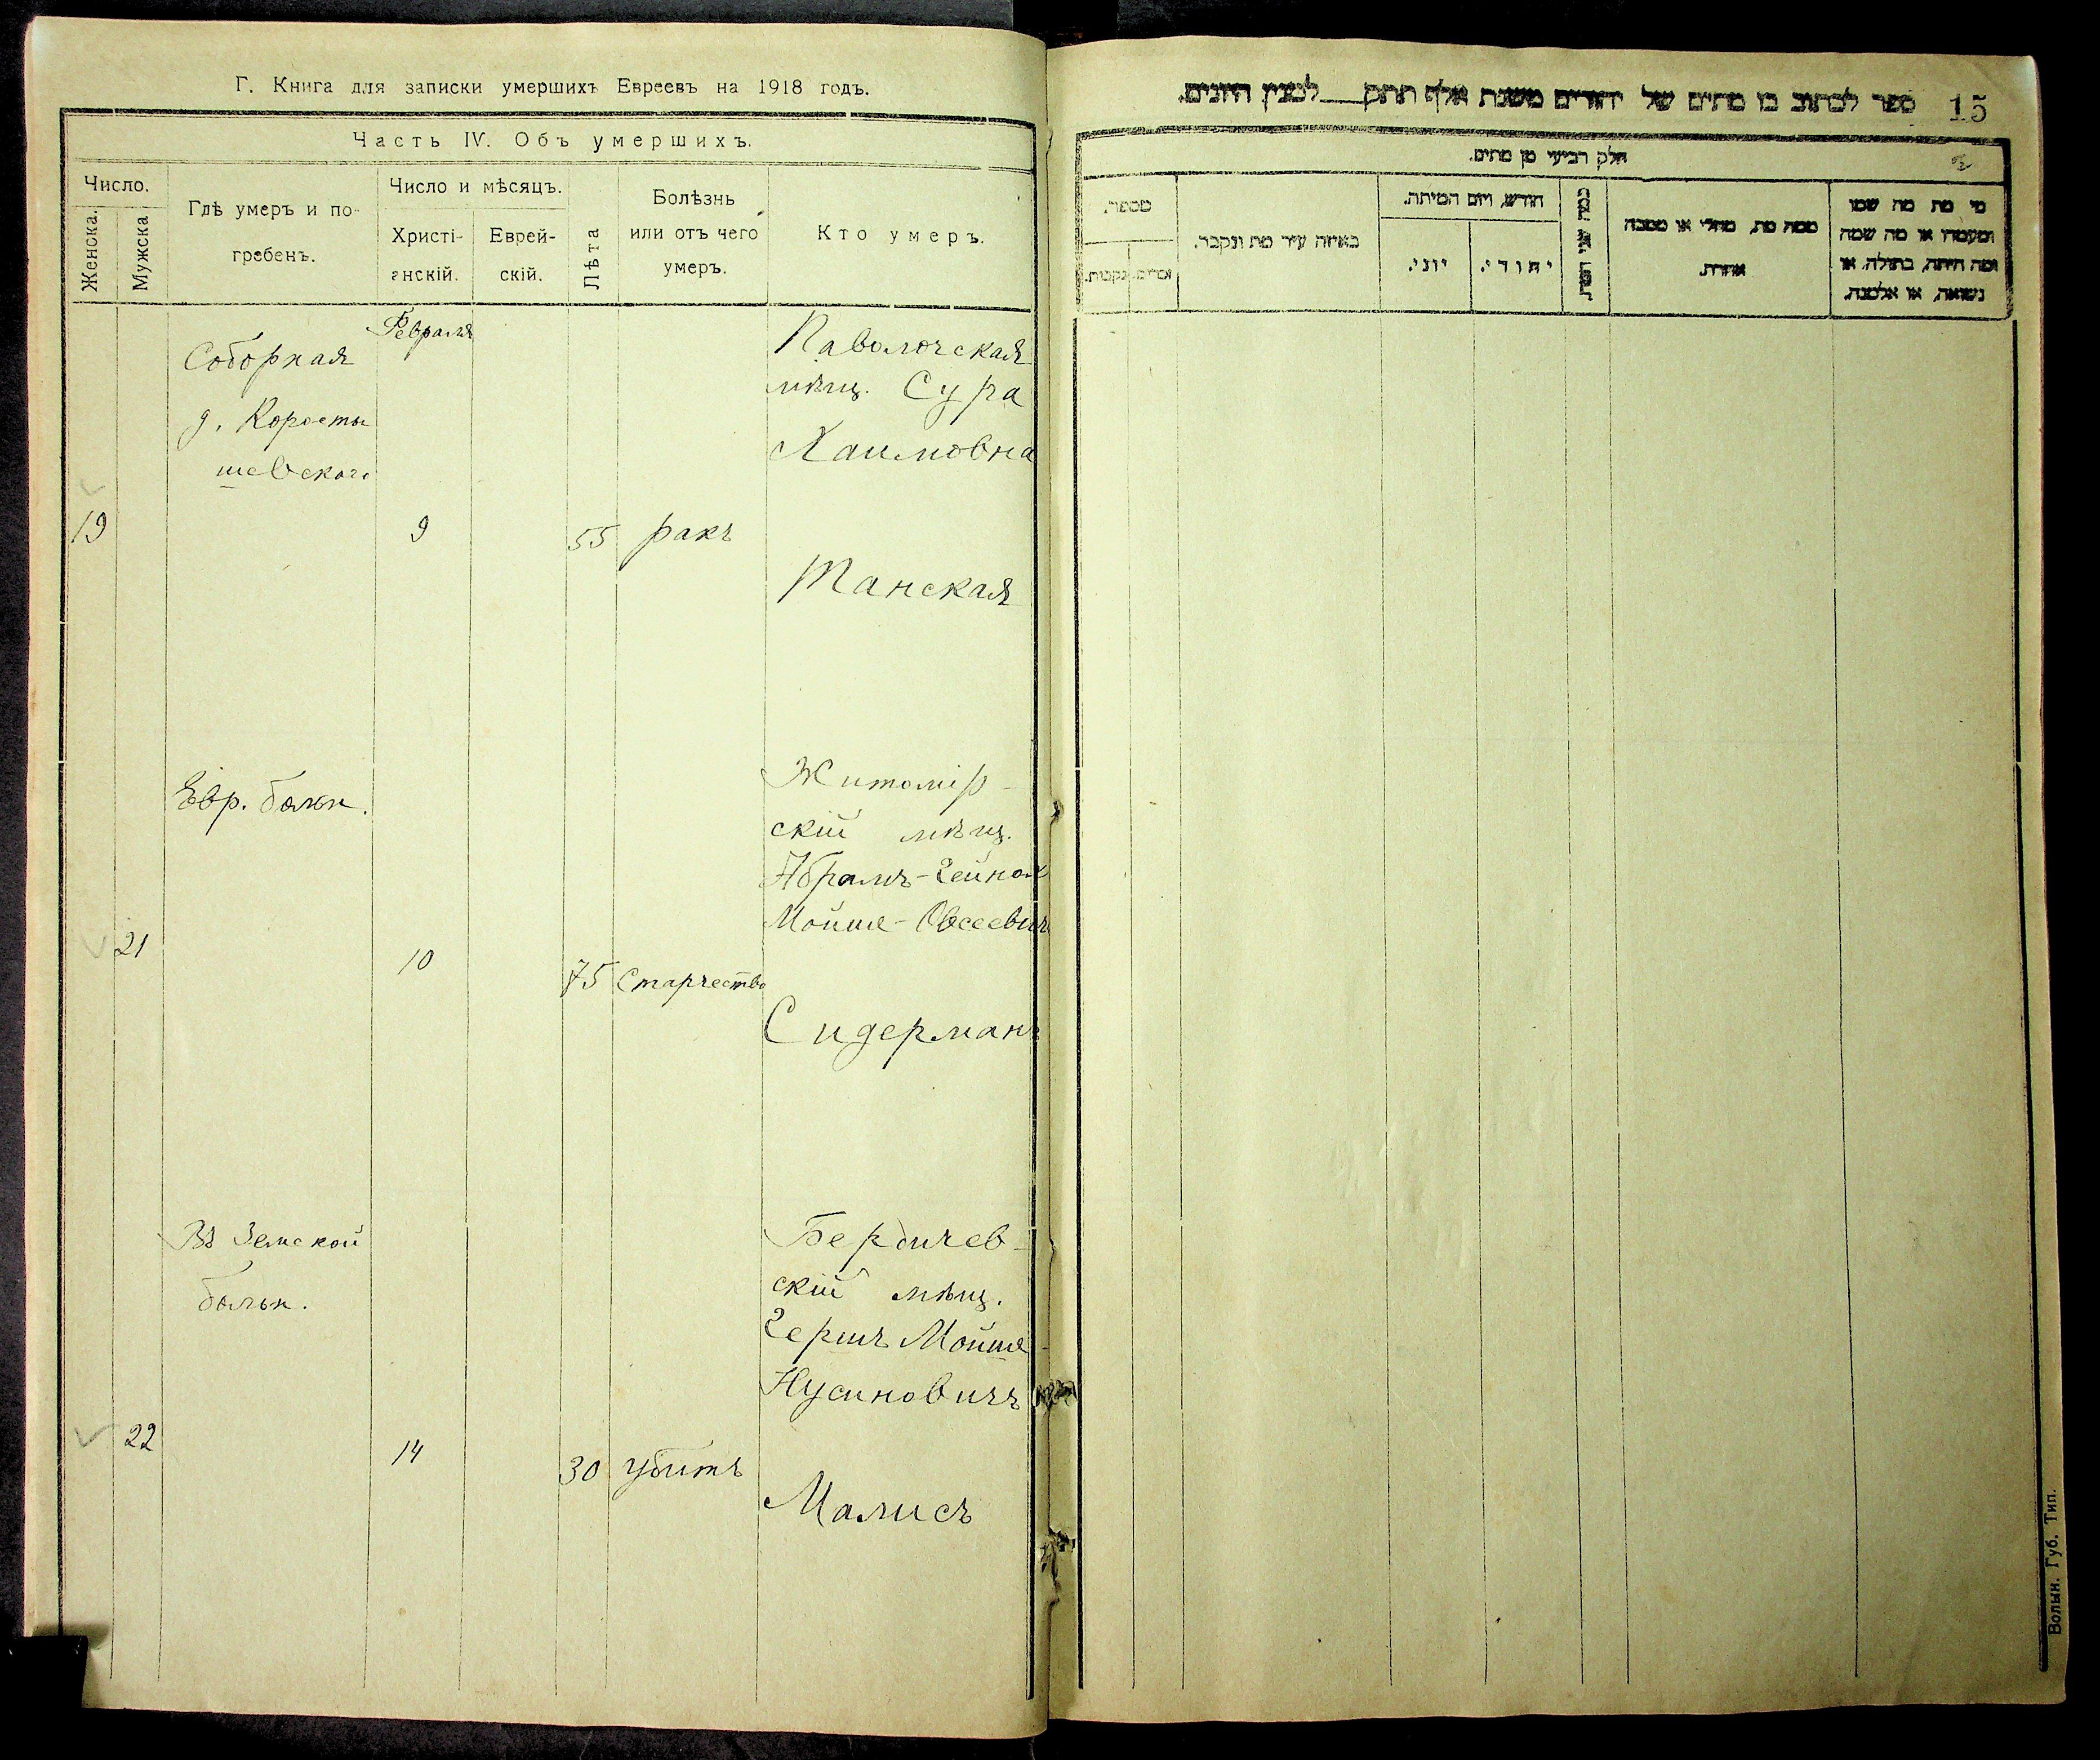 Г. Книга для записки умершихъ Евреевъ на 1918 годъ.
Часть IV. Объ умершихъ.
Число.
Женска.
Мужска
Гдѣ умеръ и по-
гребенъ.
Число и мѣсяцъ.
Христі-
анскій.
Еврей-
скій.
Лѣта
Болѣзнь
или отъ чего
умеръ.
Кто умеръ.
Февраля
Соборная
д. Коросты
шевского
19
9
55
ракъ
Паволочская
мѣщ. Сура
Хаимовна
Танская
Евр. больн.
21
10
75
Старчество
Житомір-
скій мѣщ.
Абрамъ-Гейнох
Мойше-Овсеевич
Сидерманъ
Въ Земской
больн.
22
14
30
убитъ
Бердичев-
скій мѣщ.
Гершъ Мойше-
Нусиновичъ
Малисъ
ספר לכתוב בו מתים של יהודים משנת אלף תתק לכנין היונים.
15
חלק רביעי מן מתים.
מספר.
זכרים.
נקבות.
באיזה עיר מת ונקבר.
חודש, ויום המיתה.
יוני.
יהודי.
כמה שני
ממה מת, מחלי או מסבה
אחרת.
מי מת מה שמו
ומעמדו או מה שמה
ומה היתה, בתולה, או
נשואה, או אלמנה.
Волын. Губ. Тип.